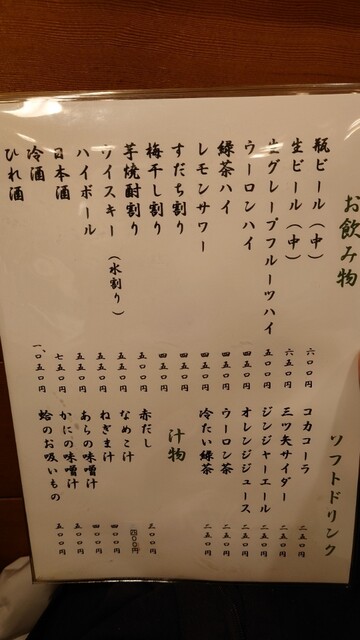 お飲み物
瓶ビール（中） 六〇〇円
生ビール（中） 六五〇円
生グレープフルーツハイ 五〇〇円
ウーロンハイ 四五〇円
緑茶ハイ 四五〇円
レモンサワー 四五〇円
すだち割り 四五〇円
梅干し割り 五〇〇円
芋焼酎割り 五五〇円
ウイスキー（水割り） 五五〇円
ハイボール 五五〇円
日本酒 五五〇円
冷酒 七五〇円
ひれ酒 一、〇五〇円
ソフトドリンク
コカコーラ 二五〇円
三ツ矢サイダー 二五〇円
ジンジャーエール 二五〇円
オレンジジュース 二五〇円
ウーロン茶 二五〇円
冷たい緑茶 二五〇円
汁物
赤だし 三〇〇円
なめこ汁 四〇〇円
ねぎま汁 四〇〇円
あらの味噌汁 四〇〇円
かにの味噌汁 五〇〇円
蛤のお吸いもの 五〇〇円